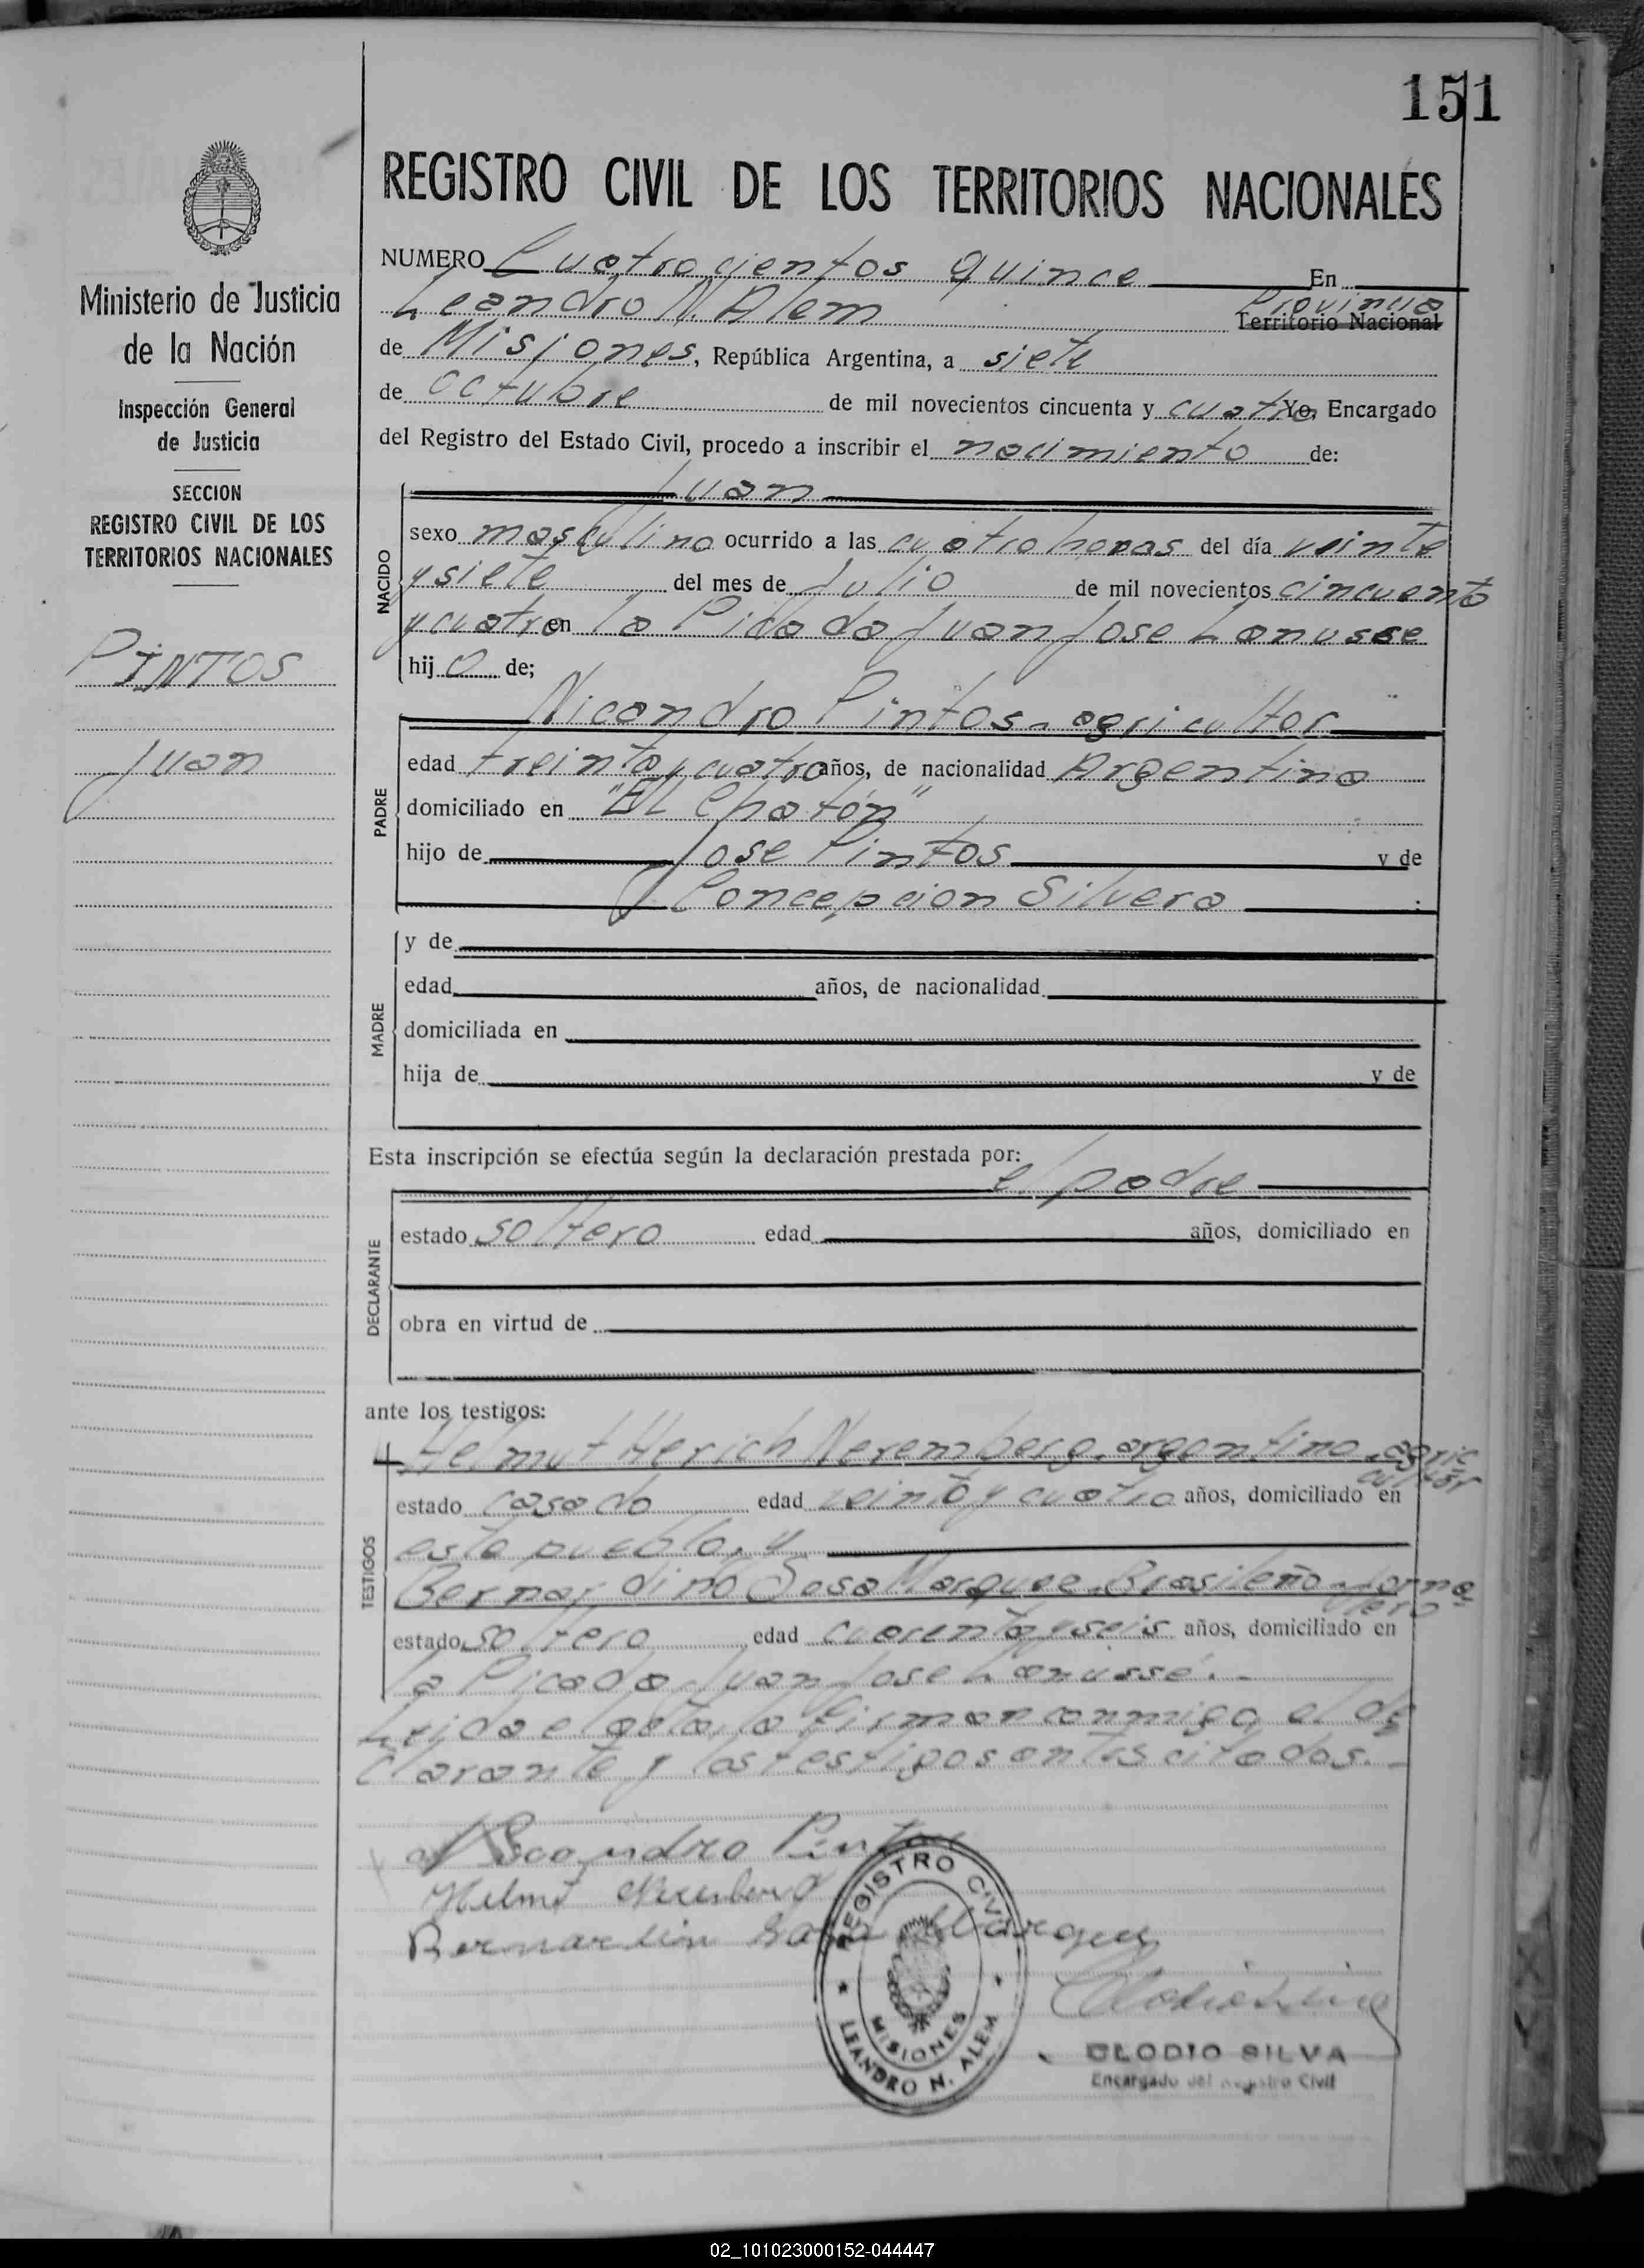 151
Ministerio de Justicia
de la Nación
Inspección General
de Justicia
SECCION
REGISTRO CIVIL DE LOS
TERRITORIOS NACIONALES
PINTOS
Juan
REGISTRO CIVIL DE LOS TERRITORIOS NACIONALES
NUMERO Cuatrocientos quince En
Leandro N. Alem Provincia Territorio Nacional
de Misiones, República Argentina, a siete
de octubre de mil novecientos cincuenta y cuatro Yo, Encargado
del Registro del Estado Civil, procedo a inscribir el nacimiento de:
NACIDO
Juan
sexo masculino ocurrido a las cuatro horas del día veinte
y siete del mes de Julio de mil novecientos cincuenta
y cuatro en la Picada Juan Jose Lanusse
hijo de;
PADRE
Nicandro Pintos - agricultor
edad treinta y cuatro años, de nacionalidad Argentina
domiciliado en "El Chatón"
hijo de Jose Pintos y de
Concepcion Silvera
MADRE
y de
edad años, de nacionalidad
domiciliada en
hija de y de
Esta inscripción se efectúa según la declaración prestada por:
DECLARANTE
el padre
estado soltero edad años, domiciliado en
obra en virtud de
ante los testigos:
TESTIGOS
Helmut Herich Neremberg, argentino, agric
cultor
estado casado edad veinta y cuatro años, domiciliado en
este pueblo, y
Bernardino Sosa Marques, Brasileño - Jorna
lero
estado soltero edad cuarenta y seis años, domiciliado en
la Picada Juan Jose Lanusse. -
Leida el acta, la firman conmigo el de
clarante y los testigos antes citados. -
Nicandro Pintos
Helmut Neremberg
Bernardin Sosa Marques
REGISTRO CIVIL
MISIONES
LEANDRO N. ALEM
CLODIO SILVA
Encargado del Registro Civil
02_101023000152-044447